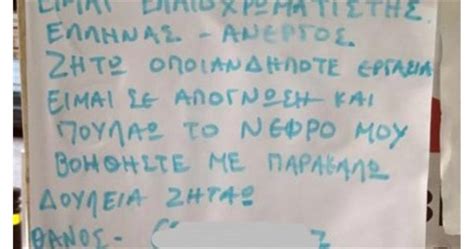 ΕΙΜΑΙ ΕΛΑΙΟΧΡΩΜΑΤΙΣΤΗΣ.
ΕΛΛΗΝΑΣ - ΑΝΕΡΓΟΣ.
ΖΗΤΩ ΟΠΟΙΑΝΔΗΠΟΤΕ ΕΡΓΑΣΙΑ
ΕΙΜΑΙ ΣΕ ΑΠΟΓΝΩΣΗ ΚΑΙ
ΠΟΥΛΑΩ ΤΟ ΝΕΦΡΟ ΜΟΥ
ΒΟΗΘΗΣΤΕ ΜΕ ΠΑΡΑΚΑΛΩ
ΔΟΥΛΕΙΑ ΖΗΤΑΩ
ΘΑΝΟΣ -